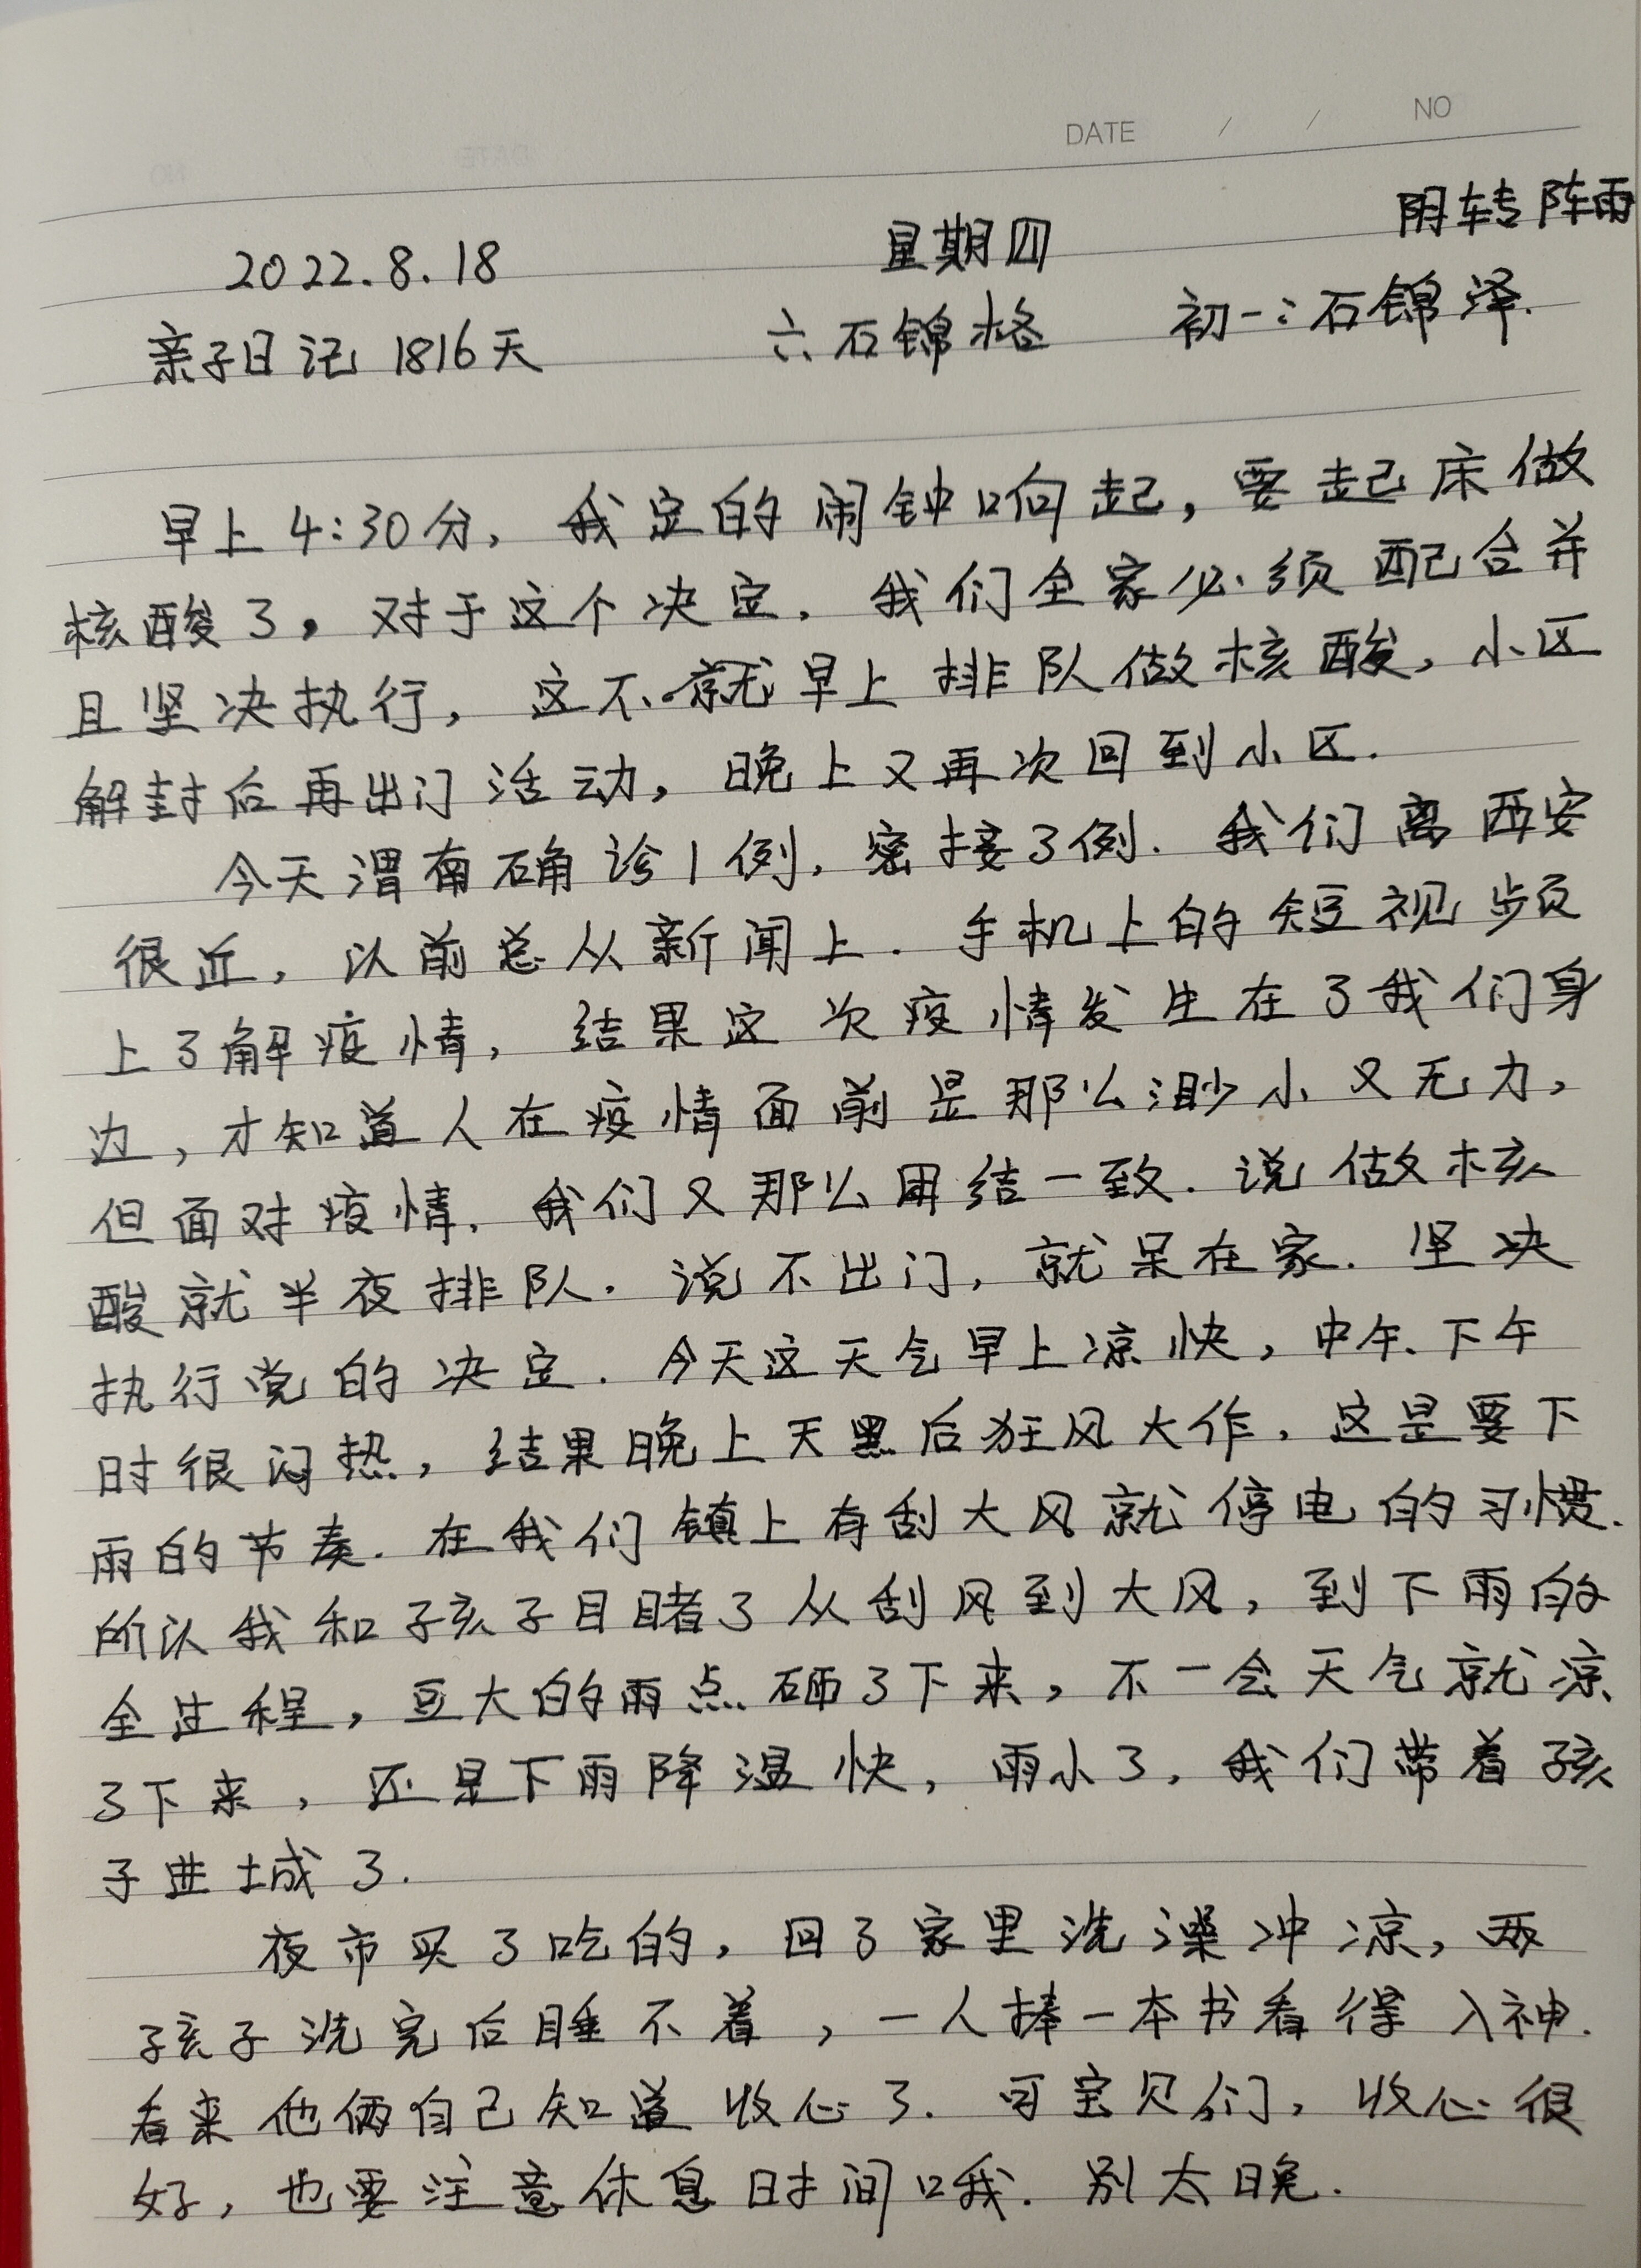 DATE / / NO
2022.8.18 星期四 阴转阵雨
亲子日记 1816天 六石锦格 初一:石锦泽.
早上4:30分,我定的闹钟响起,要起床做
核酸了。对于这个决定,我们全家必须配合并
且坚决执行,这不就早上排队做核酸,小区
解封后再出门活动,晚上又再次回到小区.
今天渭南确诊1例,密接3例.我们离西安
很近,以前总从新闻上.手机上的短视频
上了解疫情,结果这次疫情发生在了我们身
边,才知道人在疫情面前是那么渺小又无力,
但面对疫情,我们又那么团结一致.说做核
酸就半夜排队.说不出门,就呆在家.坚决
执行党的决定.今天这天气早上凉快,中午、下午
时很闷热,结果晚上天黑后狂风大作,这是要下
雨的节奏.在我们镇上有刮大风就停电的习惯.
所以我和孩子目睹了从刮风到大风,到下雨的
全过程,豆大的雨点砸了下来,不一会天气就凉
了下来,还是下雨降温快,雨小了,我们带着孩
子进城了.
夜市买了吃的,回了家里洗澡冲凉,两
孩子洗完后睡不着,一人捧一本书看得入神.
看来他俩自己知道收心了.可宝贝们,收心很
好,也要注意休息时间哦.别太晚.